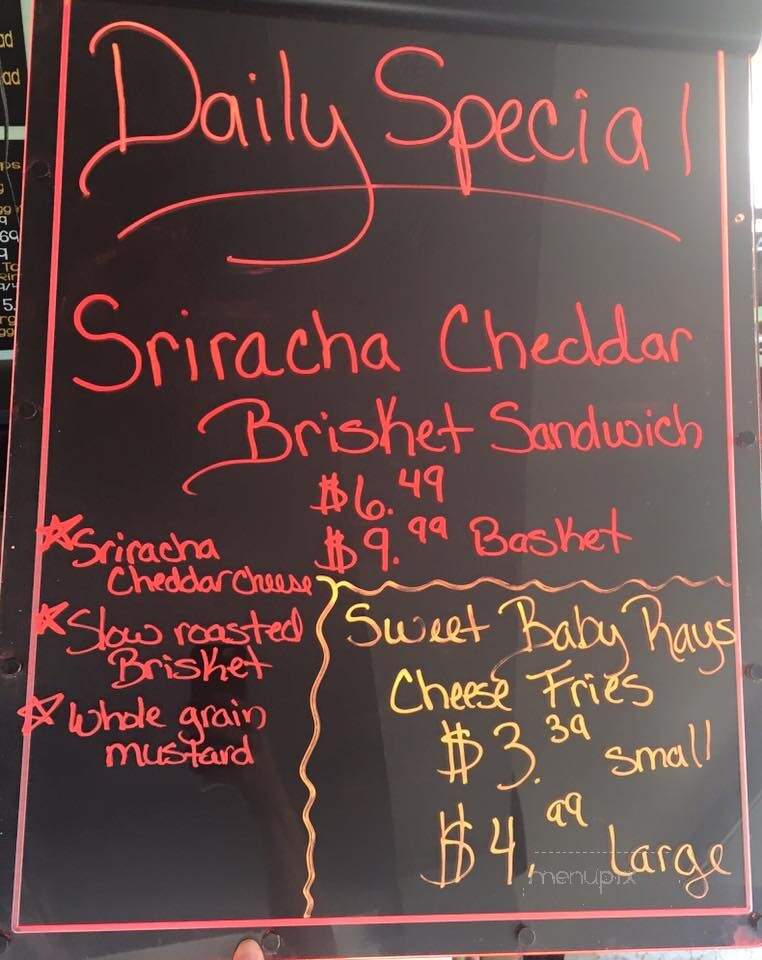 Daily Special
Sriracha Cheddar
Brisket Sandwich
$6.49
$9.99 Basket
Sriracha
Cheddar cheese
Slow roasted
Brisket
Whole grain
mustard
Sweet Baby Rays
Cheese Fries
$3.39 small
$4.99 Large
menupix